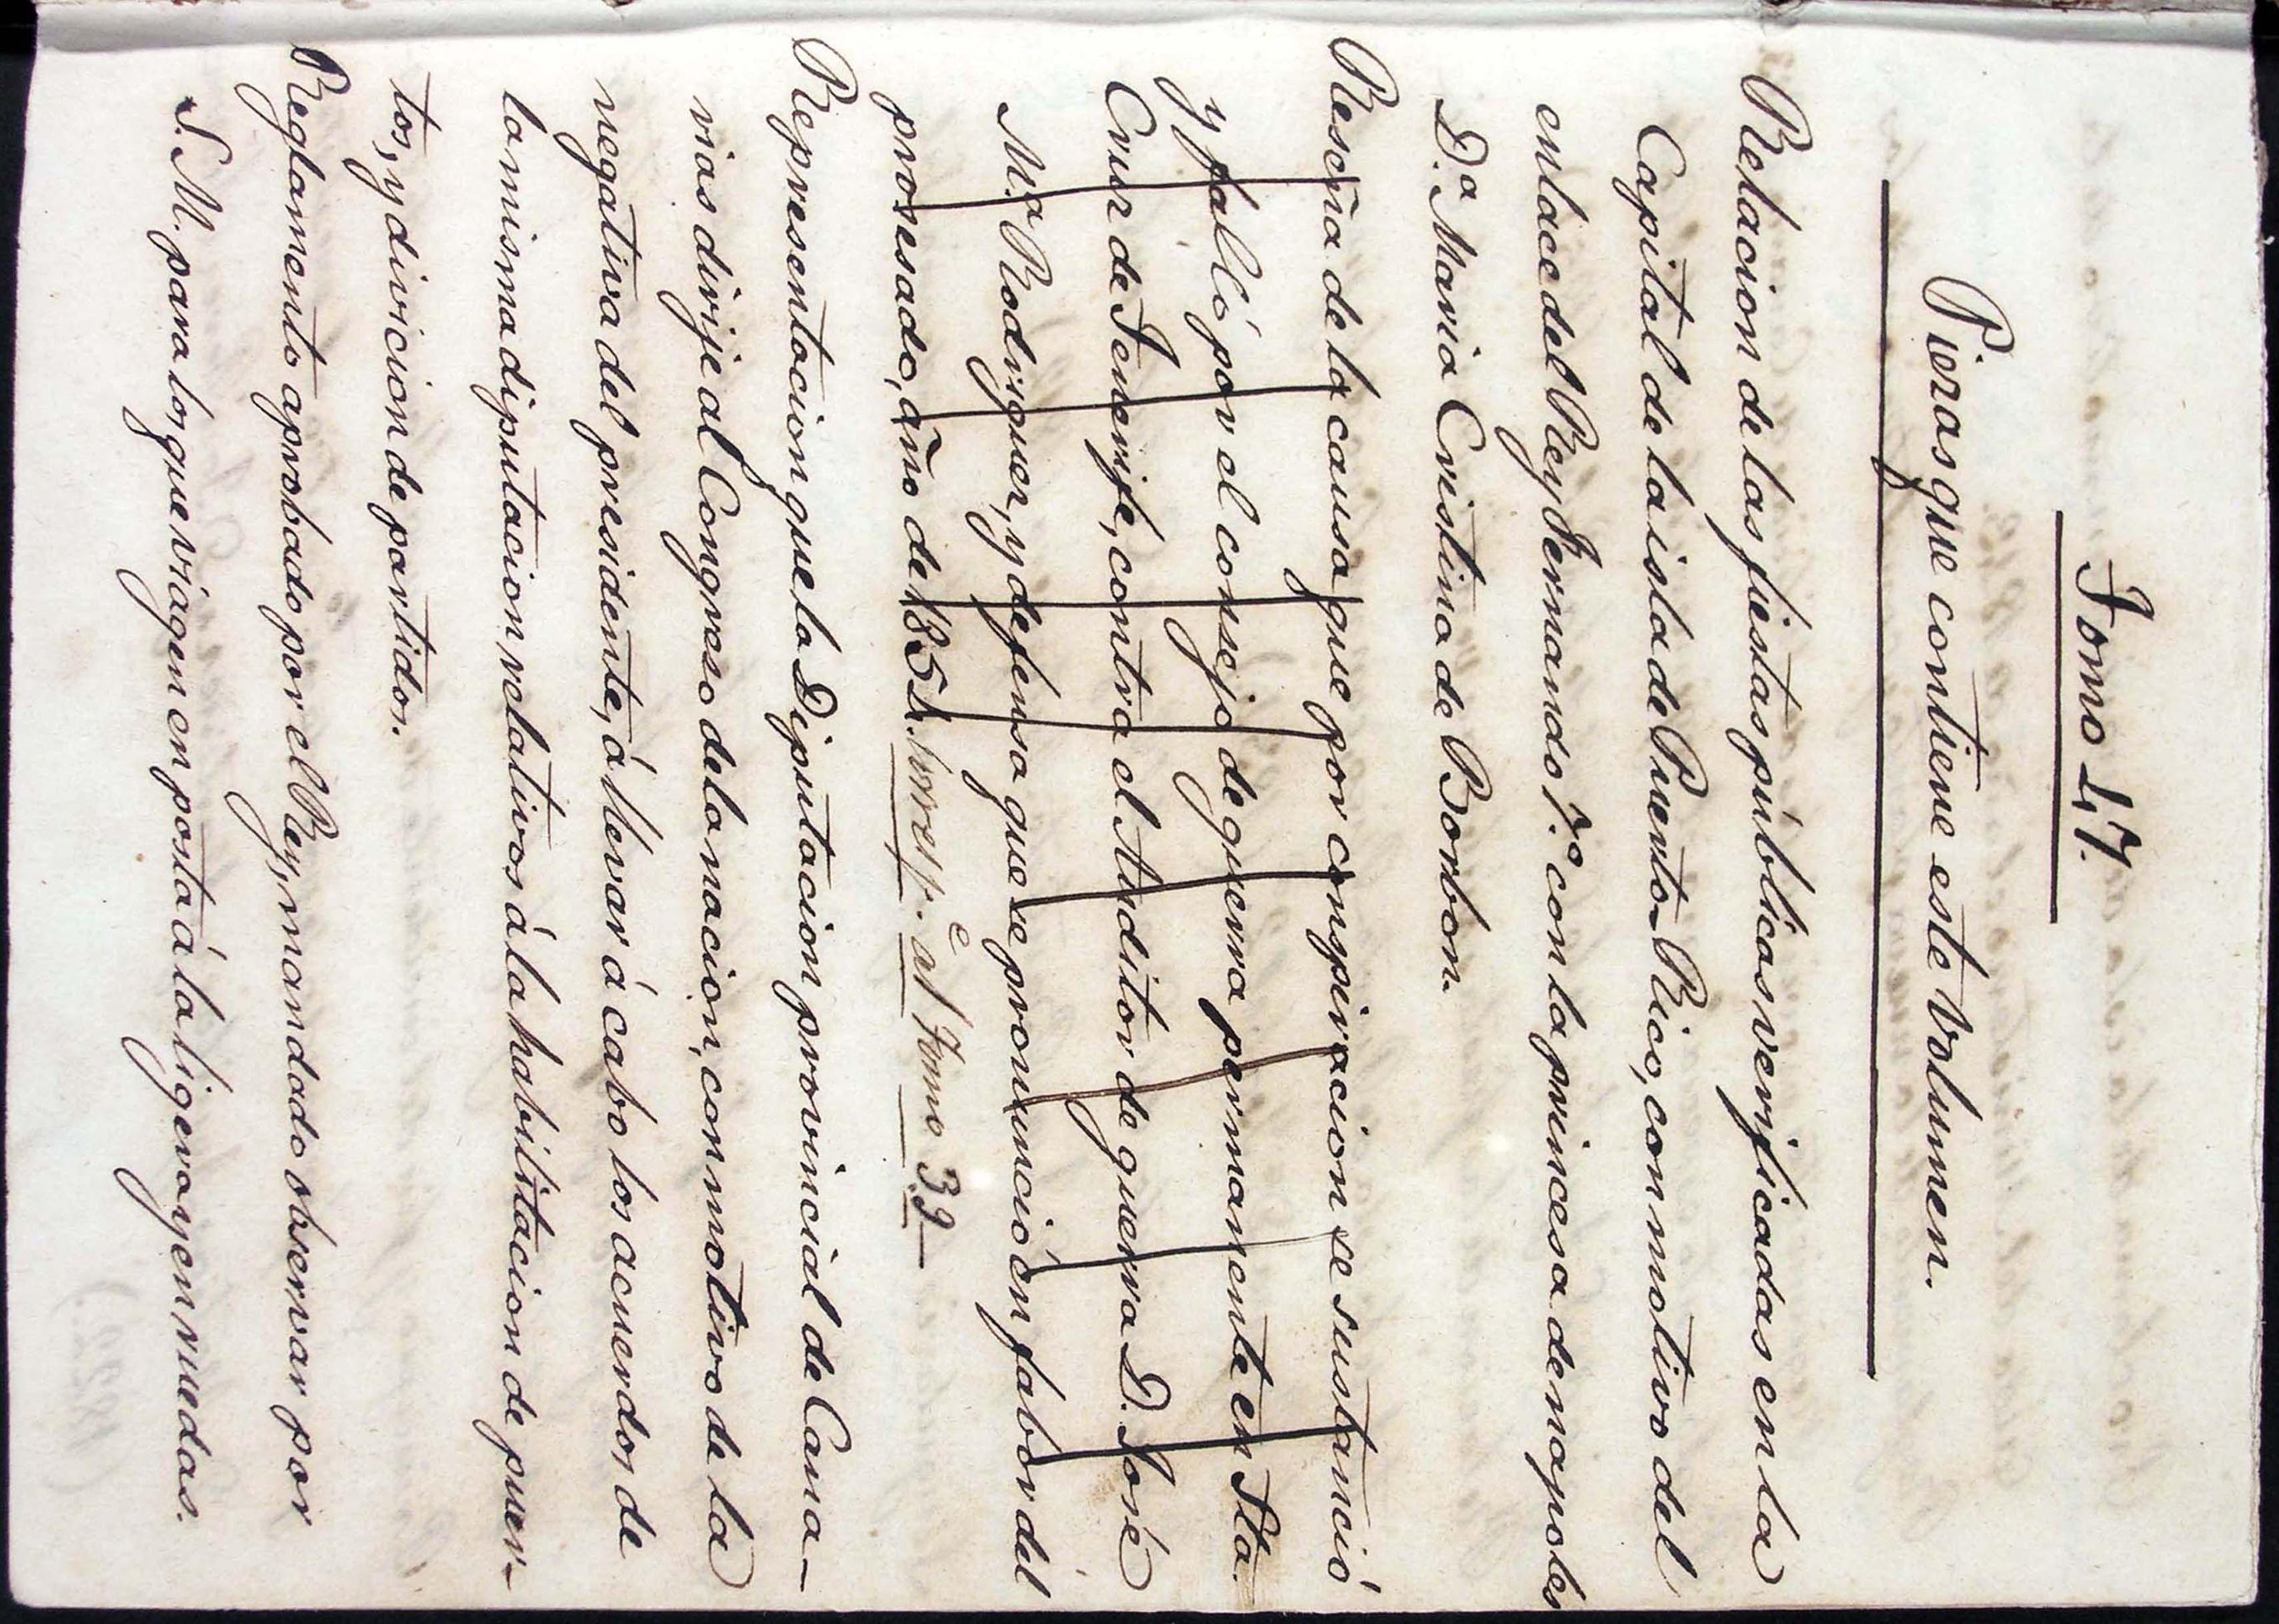 Tomo 47.
Piezas que contiene este volumen.
Relacion de las fiestas públicas verificadas en la
Capital de la isla de Puerto-Rico, con motivo del
enlace del Rey Fernando 7.º con la princesa de napoles
D.ª Maria Cristina de Borbon.
Reseña de la causa que por conspiracion se sustanció
y falló por el consejo de guerra permanente en Sta.
Cruz de Tenerife, contra el Auditor de guerra D. José
M.ª Rodriguez, y defensa que se pronunció en fabor del
prosesado, año de 1851. Corresp.e al Tomo 39
Representacion que la Diputacion provincial de Cana-
rias dirije al Congreso de la nacion, con motivo de la
negativa del presidente, á llevar á cabo los acuerdos de
la misma diputacion, relativos á la habilitacion de puer-
tos, y divicion de partidos.
Reglamento aprobado por el Rey, mandado observar por
S. M. para los que viagen en posta á la ligera y en ruedas.